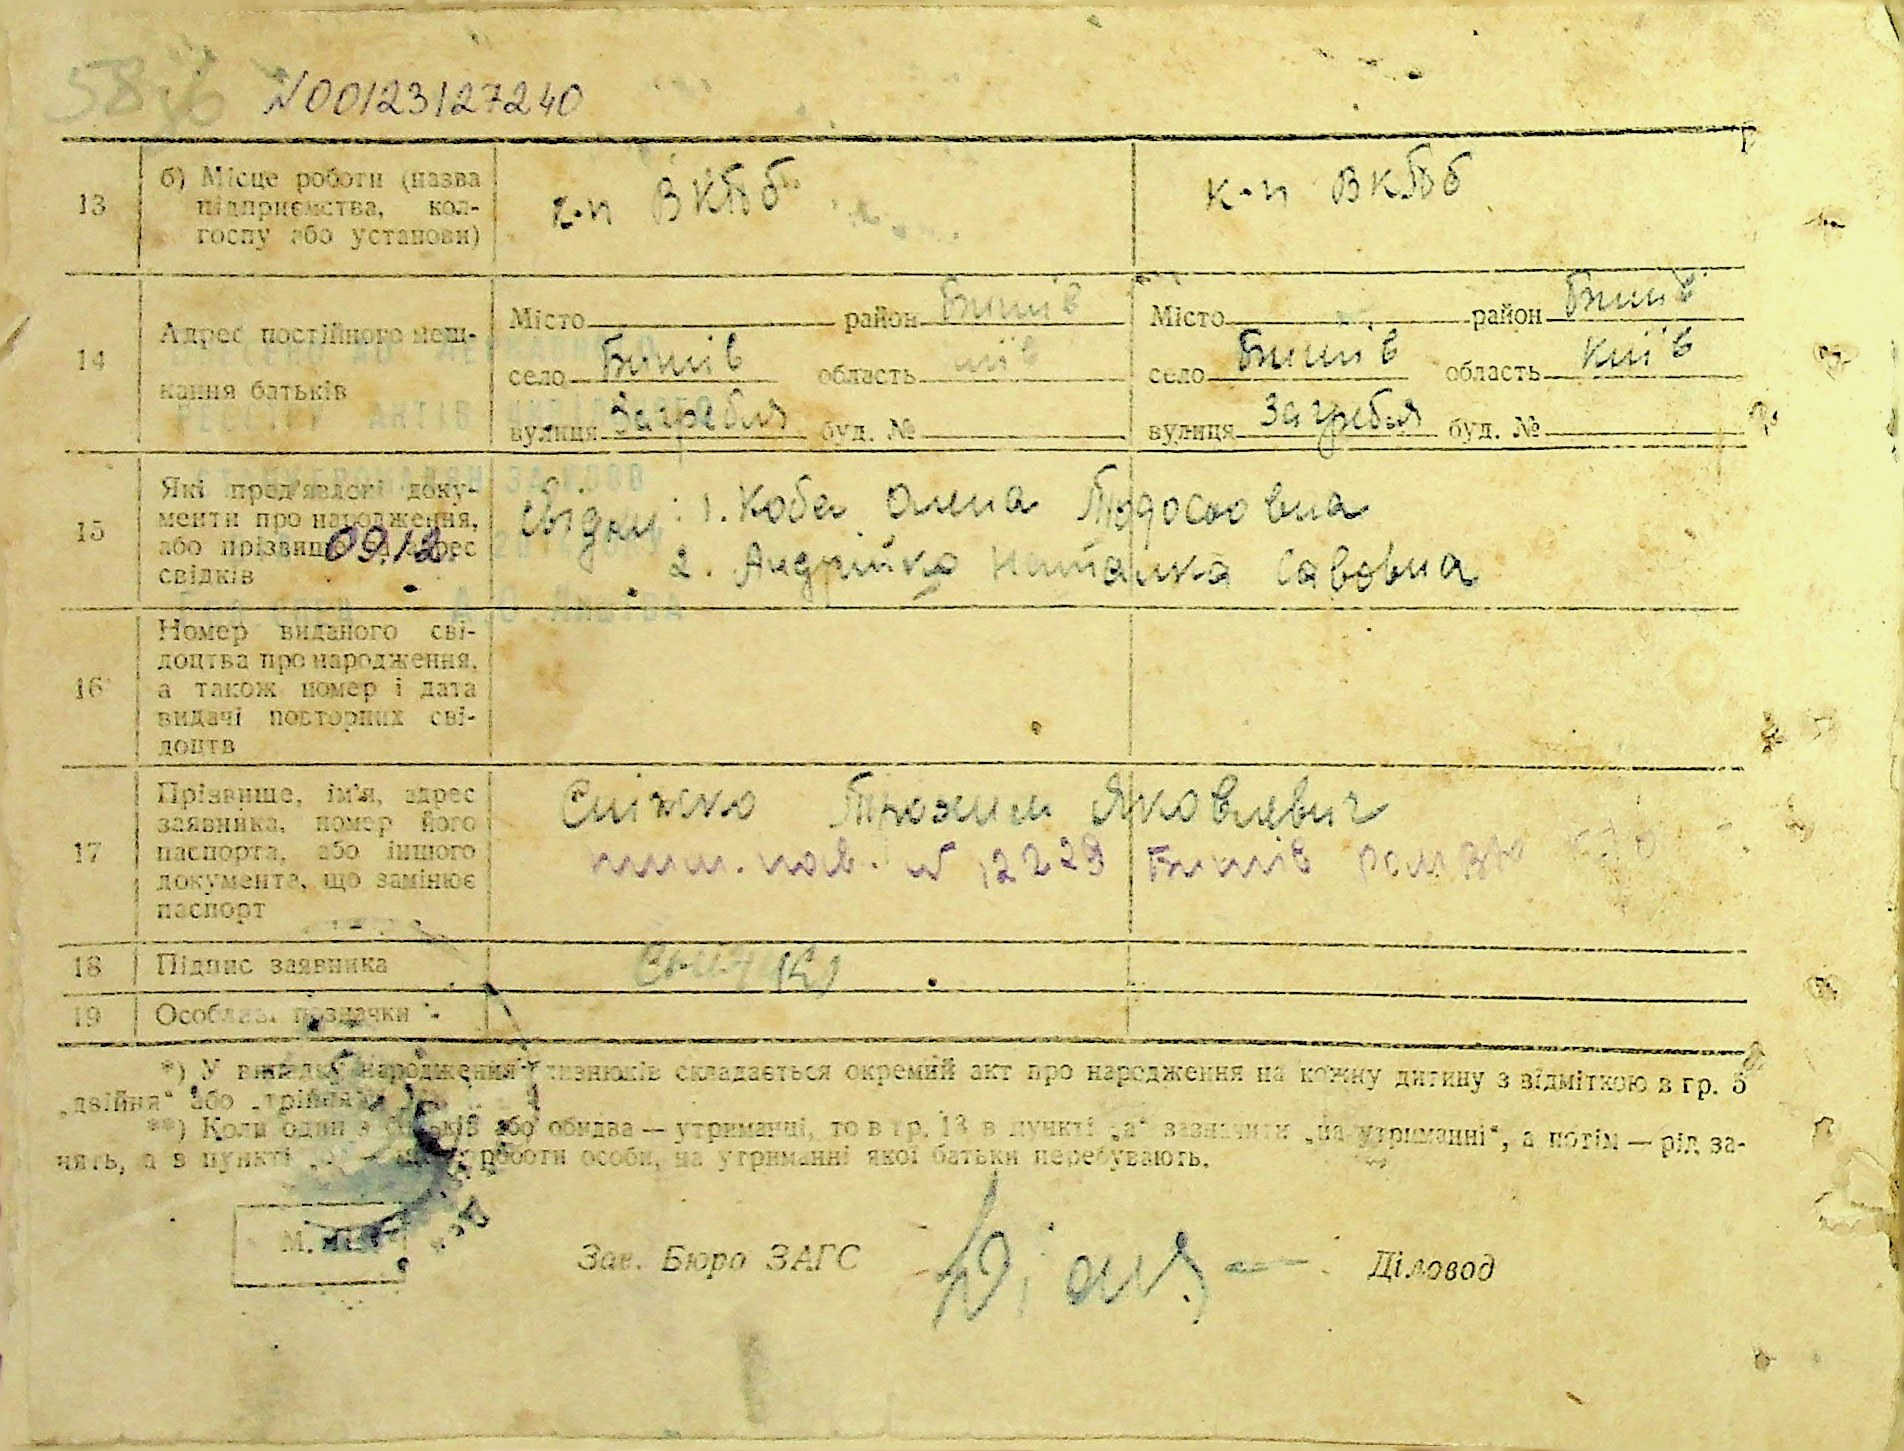 N00123127240
13 б) Місце роботи (назва
підприємства, кол-
госпу або установи)
к-п ВКПб к-п ВКПб
14 Адрес постійного меш-
кання батьків
Місто район Бишів Місто район Бишів
село Бишів область село Бишів область Київ
вулиця Загребля буд. № вулиця Загребля буд. №
15 Які пред'явлені доку-
менти про народження,
або прізвище та адрес
свідків
09.12.
Свідки: 1. Коба Олена Тодосовна
2. Андрійко Наталка Савовна
16 Номер виданого сві-
доцтва про народження,
а також номер і дата
видачі повторних сві-
доцтв
17 Прізвище, ім'я, адрес
заявника, номер його
паспорта, або іншого
документа, що замінює
паспорт
Сніжко Трохим Яковлевич
тим. пов. № 12229 Бишів
18 Підпис заявника
19 Особливі позначки
*) У випадку народження близнюків складається окремий акт про народження на кожну дитину з відміткою в гр. 5
„двійня“ або „трійня“
**) Коли один з батьків або обидва — утриманці, то в гр. 13 в пункті „а“ зазначити „на утриманні“, а потім — рід за-
нять, а в пункті роботи особи, на утриманні якої батьки перебувають.
М.
Зав. Бюро ЗАГС Діловод